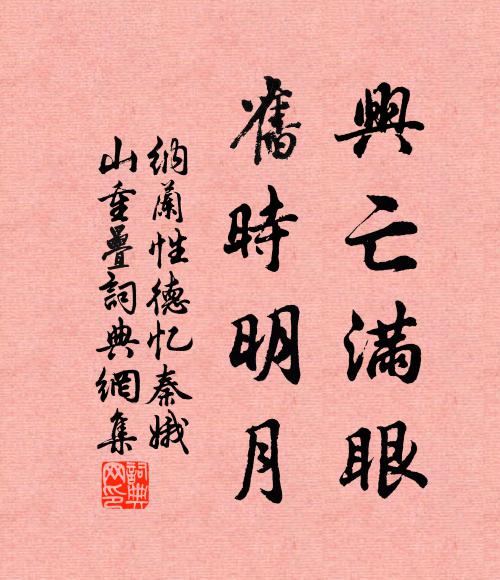 興亡滿眼
舊時明月
納蘭性德忆秦娥
山重疊詞典網集
詞典网印